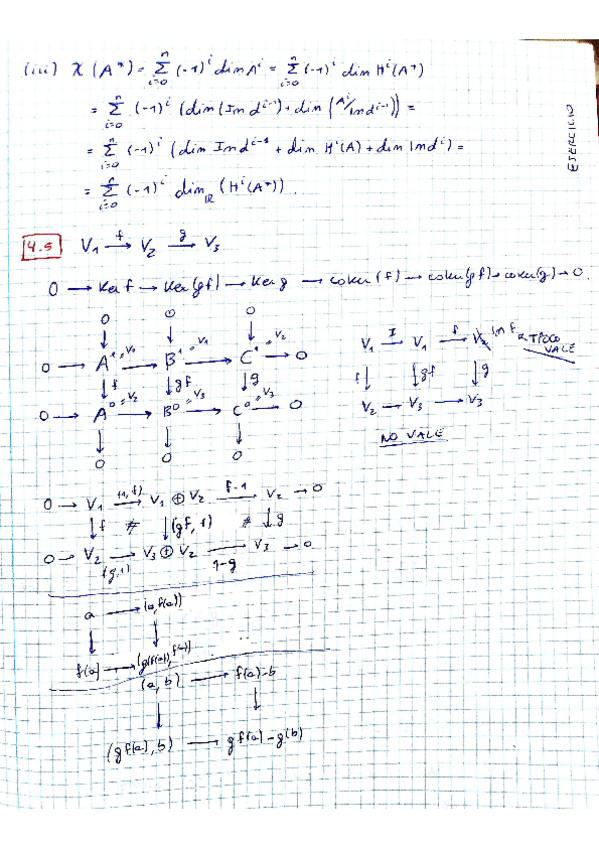 (iii) χ(A*) = Σ_{i=0}^{n} (-1)^i dim A^i = Σ_{i=0}^{n} (-1)^i dim H^i(A*)
= Σ_{i=0}^{n} (-1)^i (dim(Im d^{i-1}) + dim(A^i/Im d^{i-1})) =
= Σ_{i=0}^{n} (-1)^i (dim Im d^{i-1} + dim H^i(A) + dim Im d^i) =
= Σ_{i=0}^{n} (-1)^i dim_{IR} (H^i(A*)).
EJERCICIO
4.5 V₁ →f V₂ →g V₃
0 → Ker f → Ker(gf) → Ker g → coker(f) → coker(gf) → coker(g) → 0.
0 0 0
↓ ↓ ↓
0 → A¹ = V₁ → B¹ = V₁ → C¹ = V₂ → 0
↓f ↓gf ↓g
0 → A⁰ = V₂ → B⁰ = V₃ → C⁰ = V₃ → 0
↓ ↓ ↓
0 0 0
V₁ →I V₁ →f V₂ Im f ← TPOCO VALE
f↓ ↓gf ↓g
V₂ → V₃ → V₃
NO VALE
0 → V₁ →(1,f) V₁ ⊕ V₂ →f-1 V₂ → 0
↓f # ↓(gf,1) # ↓g
0 → V₂ →(g,1) V₃ ⊕ V₂ →1-g V₃ → 0
a → (a, f(a))
↓ ↓
f(a) → (g(f(a)), f(a))
(a, b) → f(a)-b
↓ ↓
(gf(a), b) → gf(a)-g(b)